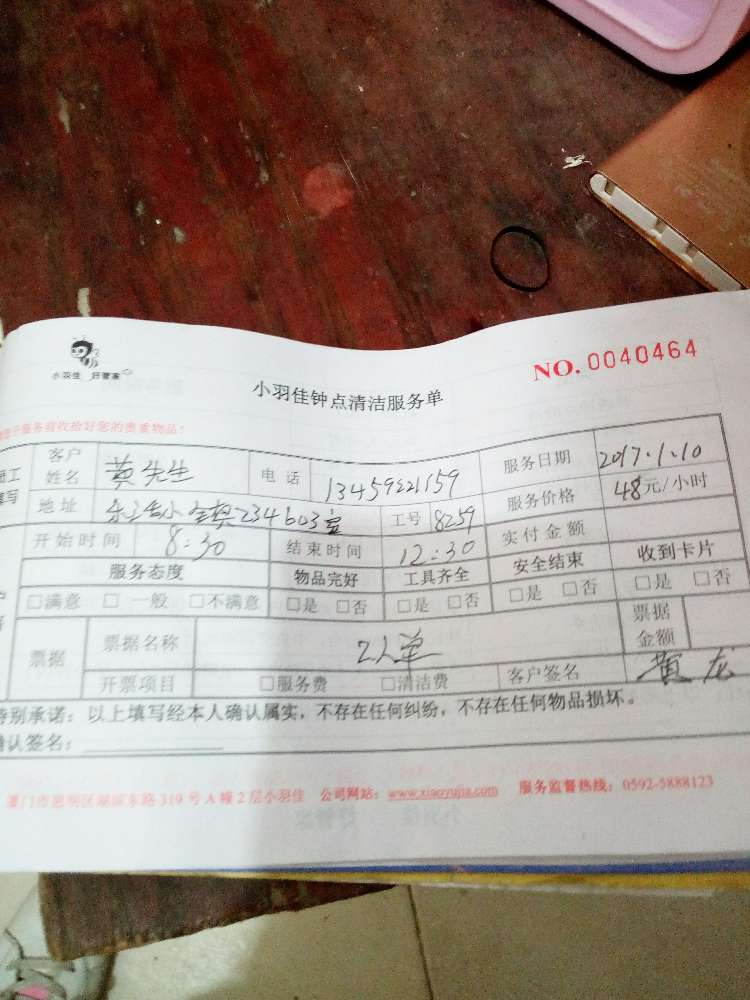 小羽佳 好管家
小羽佳钟点清洁服务单
NO. 0040464
服务前收拾好您的贵重物品!
客户姓名 黄先生 电话 13459221159 服务日期 2017.1.10
地址 234603室 工号 8259 服务价格 48元/小时
开始时间 8:30 结束时间 12:30 实付金额
服务态度 物品完好 工具齐全 安全结束 收到卡片
□满意 □一般 □不满意 □是 □否 □是 □否 □是 □否 □是 □否
票据 票据名称 2人单 票据金额
开票项目 □服务费 □清洁费 客户签名 黄龙
特别承诺:以上填写经本人确认属实,不存在任何纠纷,不存在任何物品损坏。
确认签名:
厦门市思明区湖滨东路319号A幢2层小羽佳 公司网站:www.xiaoyujia.com 服务监督热线:0592-5888123